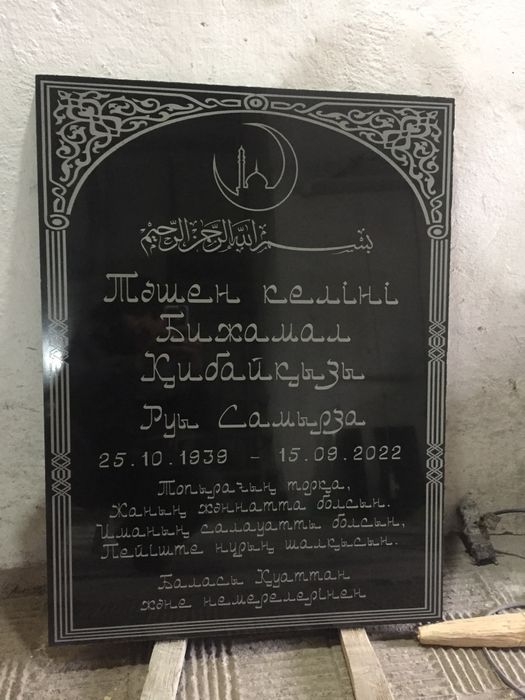 بسم الله الرحمن الرحيم
Тәшен келіні
Бижамал
Қибайқызы
Руы Самырза
25.10.1939 - 15.09.2022
Топырағың торқа,
Жаның жәннатта болсын.
Иманың салауатты болсын,
Пейіште нұрың шалқысын.
Баласы Қуаттан
және немерелерінен